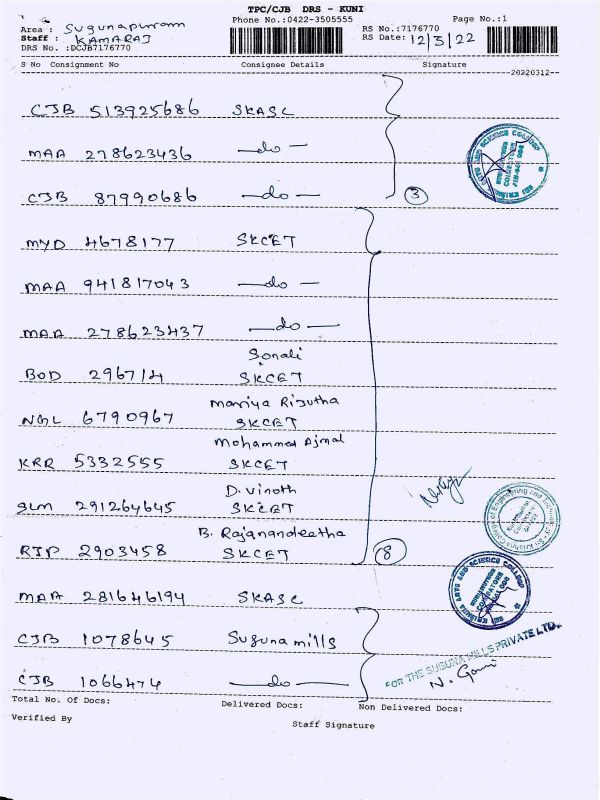 TPC/CJB DRS - KUNI
Area : Sugunapuram Phone No.:0422-3505555 Page No.:1
Staff : KAMARAJ RS No:7176770
DRS No. :DCJB7176770 RS Date: 12/3/22
S No Consignment No Consignee Details Signature
20220312
CJB 513925686 SKASC
MAA 278623436 —do—
CJB 87990686 —do— 3
MYD 4678177 SKCET
MAA 941817043 —do—
MAA 278623437 —do—
Sonali
BOD 296714 SKCET
Marriya Rijutha
NGL 6790967 SKCET
Mohammed Ajmal
KRR 5332555 SKCET
D. Vinoth
SLM 291264645 SKCET
B. Rajanandeetha
RJP 2903458 SKCET 8
MAA 281646194 SKASC
CJB 1078645 Suguna mills
FOR THE SUGUNA MILLS PRIVATE LTD.
CJB 1066474 —do— N. Gomi
Total No. Of Docs: Delivered Docs: Non Delivered Docs:
Verified By Staff Signature